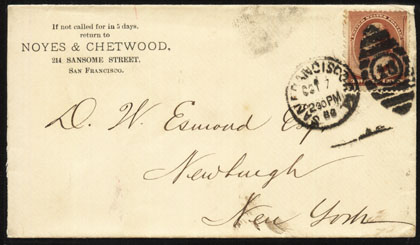 If not called for in 5 days,
return to
NOYES & CHETWOOD,
214 SANSOME STREET,
SAN FRANCISCO.
SAN FRANCISCO
2 30 PM
D. W. Esmond Esq
Newburgh
New York